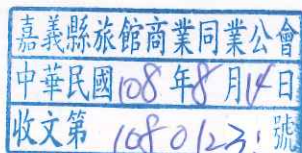 嘉義縣旅館商業同業公會
中華民國108年8月14日
收文第1080123號